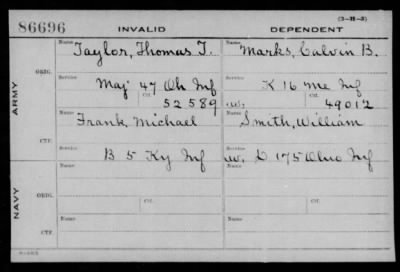 (3-H-3)
86696 INVALID DEPENDENT
Name Taylor, Thomas T. Name Marks, Calvin B.
ARMY ORIG. Service Maj 47 Oh Inf Service K 16 Me Inf
Ctf. 52589 W. Ctf. 49012
Name Frank, Michael Name Smith, William
CTF. Service B 5 Ky Inf Service W. D 175 Ohio Inf
NAVY ORIG. Name Ctf. Name Ctf.
CTF. Name Name